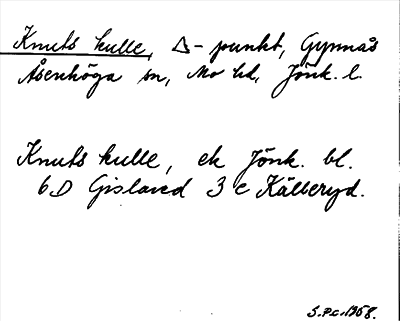 Knuts kulle, △-punkt, Gynnås
Åsenhöga sn, Mo hd, Jönk. l.
Knuts kulle, ek Jönk. bl.
6D Gislaved 3 e Källeryd.
S.P.C. 1968.